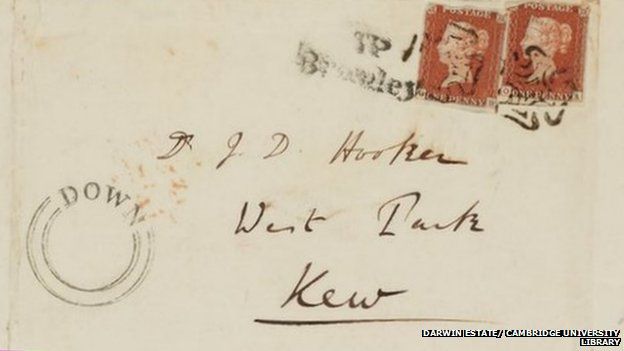 POSTAGE
POSTAGE
TP
Bromley
ONE PENNY
ONE PENNY
Dr J. D. Hooker
West Park
Kew
DOWN
DARWIN ESTATE/ CAMBRIDGE UNIVERSITY
LIBRARY